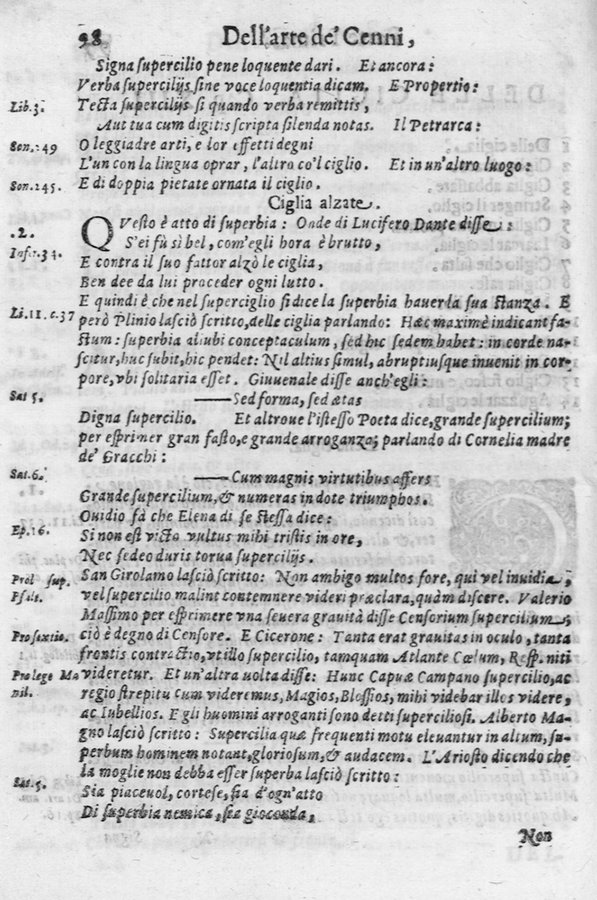 98 Dell'arte de' Cenni,
Signa supercilio pene loquente dari. Et ancora:
Verba supercilijs sine voce loquentia dicam. E Propertio:
Lib. 3. Tecta supercilijs si quando verba remittis,
Aut tua cum digitis scripta silenda notas. Il Petrarca:
Son. 249 O leggiadre arti, e lor effetti degni
L'un con la lingua oprar, l'altro co'l ciglio. Et in un'altro luogo:
Son. 245. E di doppia pietate ornata il ciglio.
Ciglia alzate.
.2. QVesto è atto di superbia: Onde di Lucifero Dante disse:
Infer. 34. S'ei fù sì bel, com'egli hora è brutto,
E contra il suo fattor alzò le ciglia,
Ben dee da lui proceder ogni lutto.
E quindi è che nel superciglio si dice la superbia hauer la sua stanza. E
Li. 11. c. 37 però Plinio lasciò scritto, delle ciglia parlando: Hæc maximè indicant fa-
stum: superbia aliubi conceptaculum, sed hìc sedem habet: in corde na-
scitur, huc subit, hìc pendet: Nil altius simul, abruptiusque inuenit in cor-
pore, vbi solitaria esset. Giuuenale disse anch'egli:
Sat 5. —— Sed forma, sed ætas
Digna supercilio. Et altroue l'istesso Poeta dice, grande supercilium;
per esprimer gran fasto, e grande arroganza; parlando di Cornelia madre
de' Gracchi:
Sat. 6. —— Cum magnis virtutibus affers
Grande supercilium, & numeras in dote triumphos.
Ouidio fà che Elena di se stessa dice:
Ep. 16. Si non est victo vultus mihi tristis in ore,
Nec sedeo duris torua supercilijs.
Prol sup. San Girolamo lasciò scritto: Non ambigo multos fore, qui vel inuidia,
Psalt. vel supercilio malint contemnere videri præclara, quàm discere. Valerio
Massimo per esprimere vna seuera grauità disse Censorium supercilium,
Pro sextio. ciò è degno di Censore. E Cicerone: Tanta erat grauitas in oculo, tanta
frontis contractio, vt illo supercilio, tamquam Atlante Cœlum, Resp. niti
Pro lege Ma videretur. Et un'altra uolta disse: Hunc Capuæ Campano supercilio, ac
nil. regio strepitu cum videremus, Magios, Blossios, mihi videbar illos videre,
ac Iubellios. E gli huomini arroganti sono detti superciliosi. Alberto Ma-
gno lasciò scritto: Supercilia quæ frequenti motu eleuantur in altum, su-
perbum hominem notant, gloriosum, & audacem. L'Ariosto dicendo che
la moglie non debba esser superba lasciò scritto:
Sat. 5. Sia piaceuol, cortese, sia d'ogn'atto
Di superbia nemica, sia gioconda,
Non